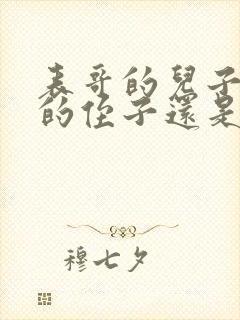 表哥的兒子
的侄子還是
穆七夕